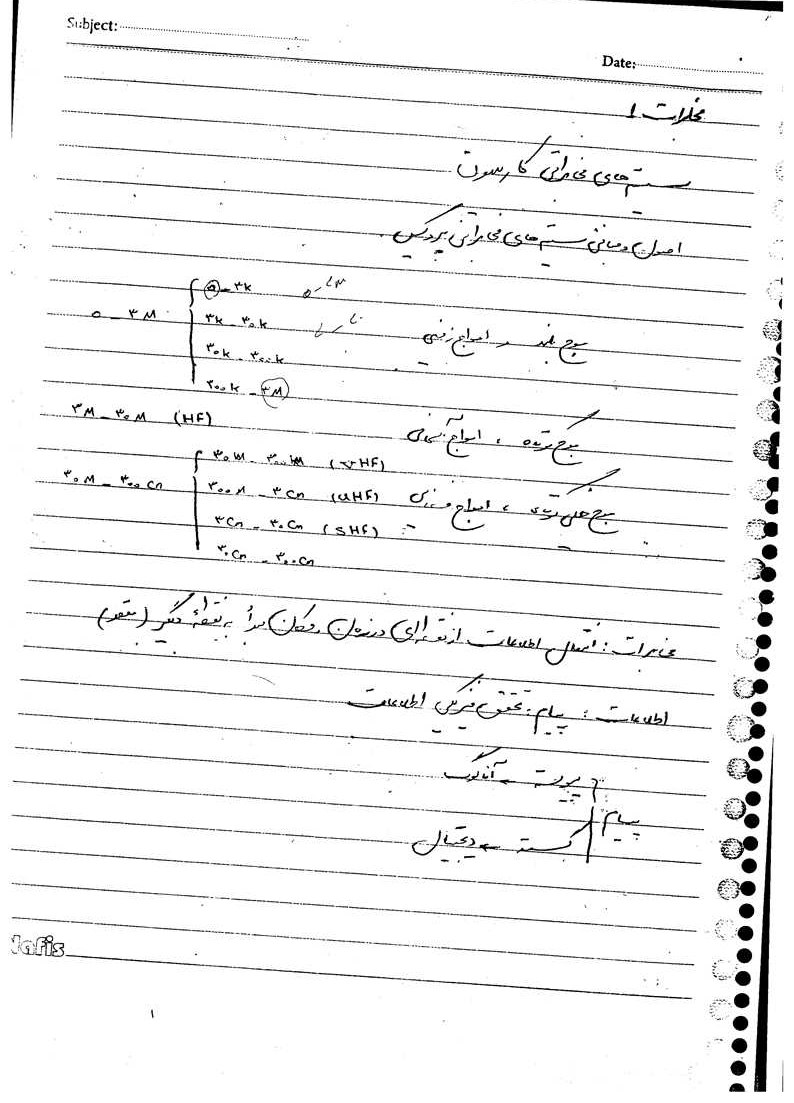 Subject:
Date:
مخابرات 1
سیستم های مخابراتی کارلسون
اصول و مبانی سیستم های مخابراتی پروکیس
0 - ۳M
0 - ۳k
۳k - ۳۰k
۳۰k - ۳۰۰k
۳۰۰k - ۳M
موج بلند و امواج زمینی
۳M - ۳۰M (HF)
موج کوتاه ، امواج آسمانی
۳۰M - ۳۰۰G
۳۰M - ۳۰۰M (VHF)
۳۰۰M - ۳G (UHF)
۳G - ۳۰G (SHF)
۳۰G - ۳۰۰G
موج خیلی کوتاه ، امواج فضایی
مخابرات : انتقال اطلاعات از نقطه ای در زمان و مکان مبدأ به نقطهٔ دیگر (مقصد)
اطلاعات : پیام : تحقق فیزیکی اطلاعات
پیام
پیوسته → آنالوگ
گسسته → دیجیتال
Nafis
۱